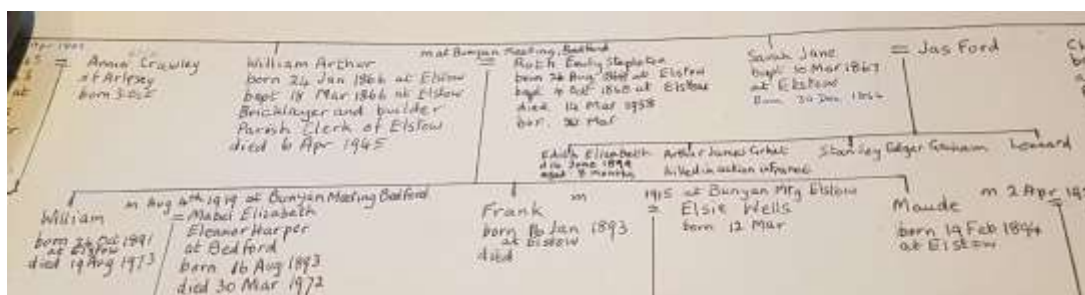 Apr 1889
= Annie Crawley
at Arlesey
born 3 Oct
William Arthur
born 24 Jan 1866 at Elstow
bapt 18 Mar 1866 at Elstow
Bricklayer and builder
Parish Clerk of Elstow
died 6 Apr 1945
m at Bunyan Meeting, Bedford
= Ruth Emily Stapleton
born 26 Aug 1868 at Elstow
bapt 4 Oct 1868 at Elstow
died 14 Mar 1958
bur. Mar
Sarah Jane
bapt 10 Mar 1867
at Elstow
Born 30 Dec 1866
= Jas Ford
Edith Elizabeth
died June 1899
aged 8 months
Arthur James
killed in action in France
Stanley Edgar Graham
Leonard
William
born 26 Oct 1891
at Elstow
died 19 Aug 1973
m Aug 4th 1919 at Bunyan Meeting Bedford
= Mabel Elizabeth
Eleanor Harper
at Bedford
born 16 Aug 1893
died 30 Mar 1972
Frank
born 16 Jan 1893
at Elstow
died
m 1915 at Bunyan Mtg Elstow
= Elsie Wells
born 12 Mar
Maude
born 19 Feb 1894
at Elstow
m 2 Apr 19
=